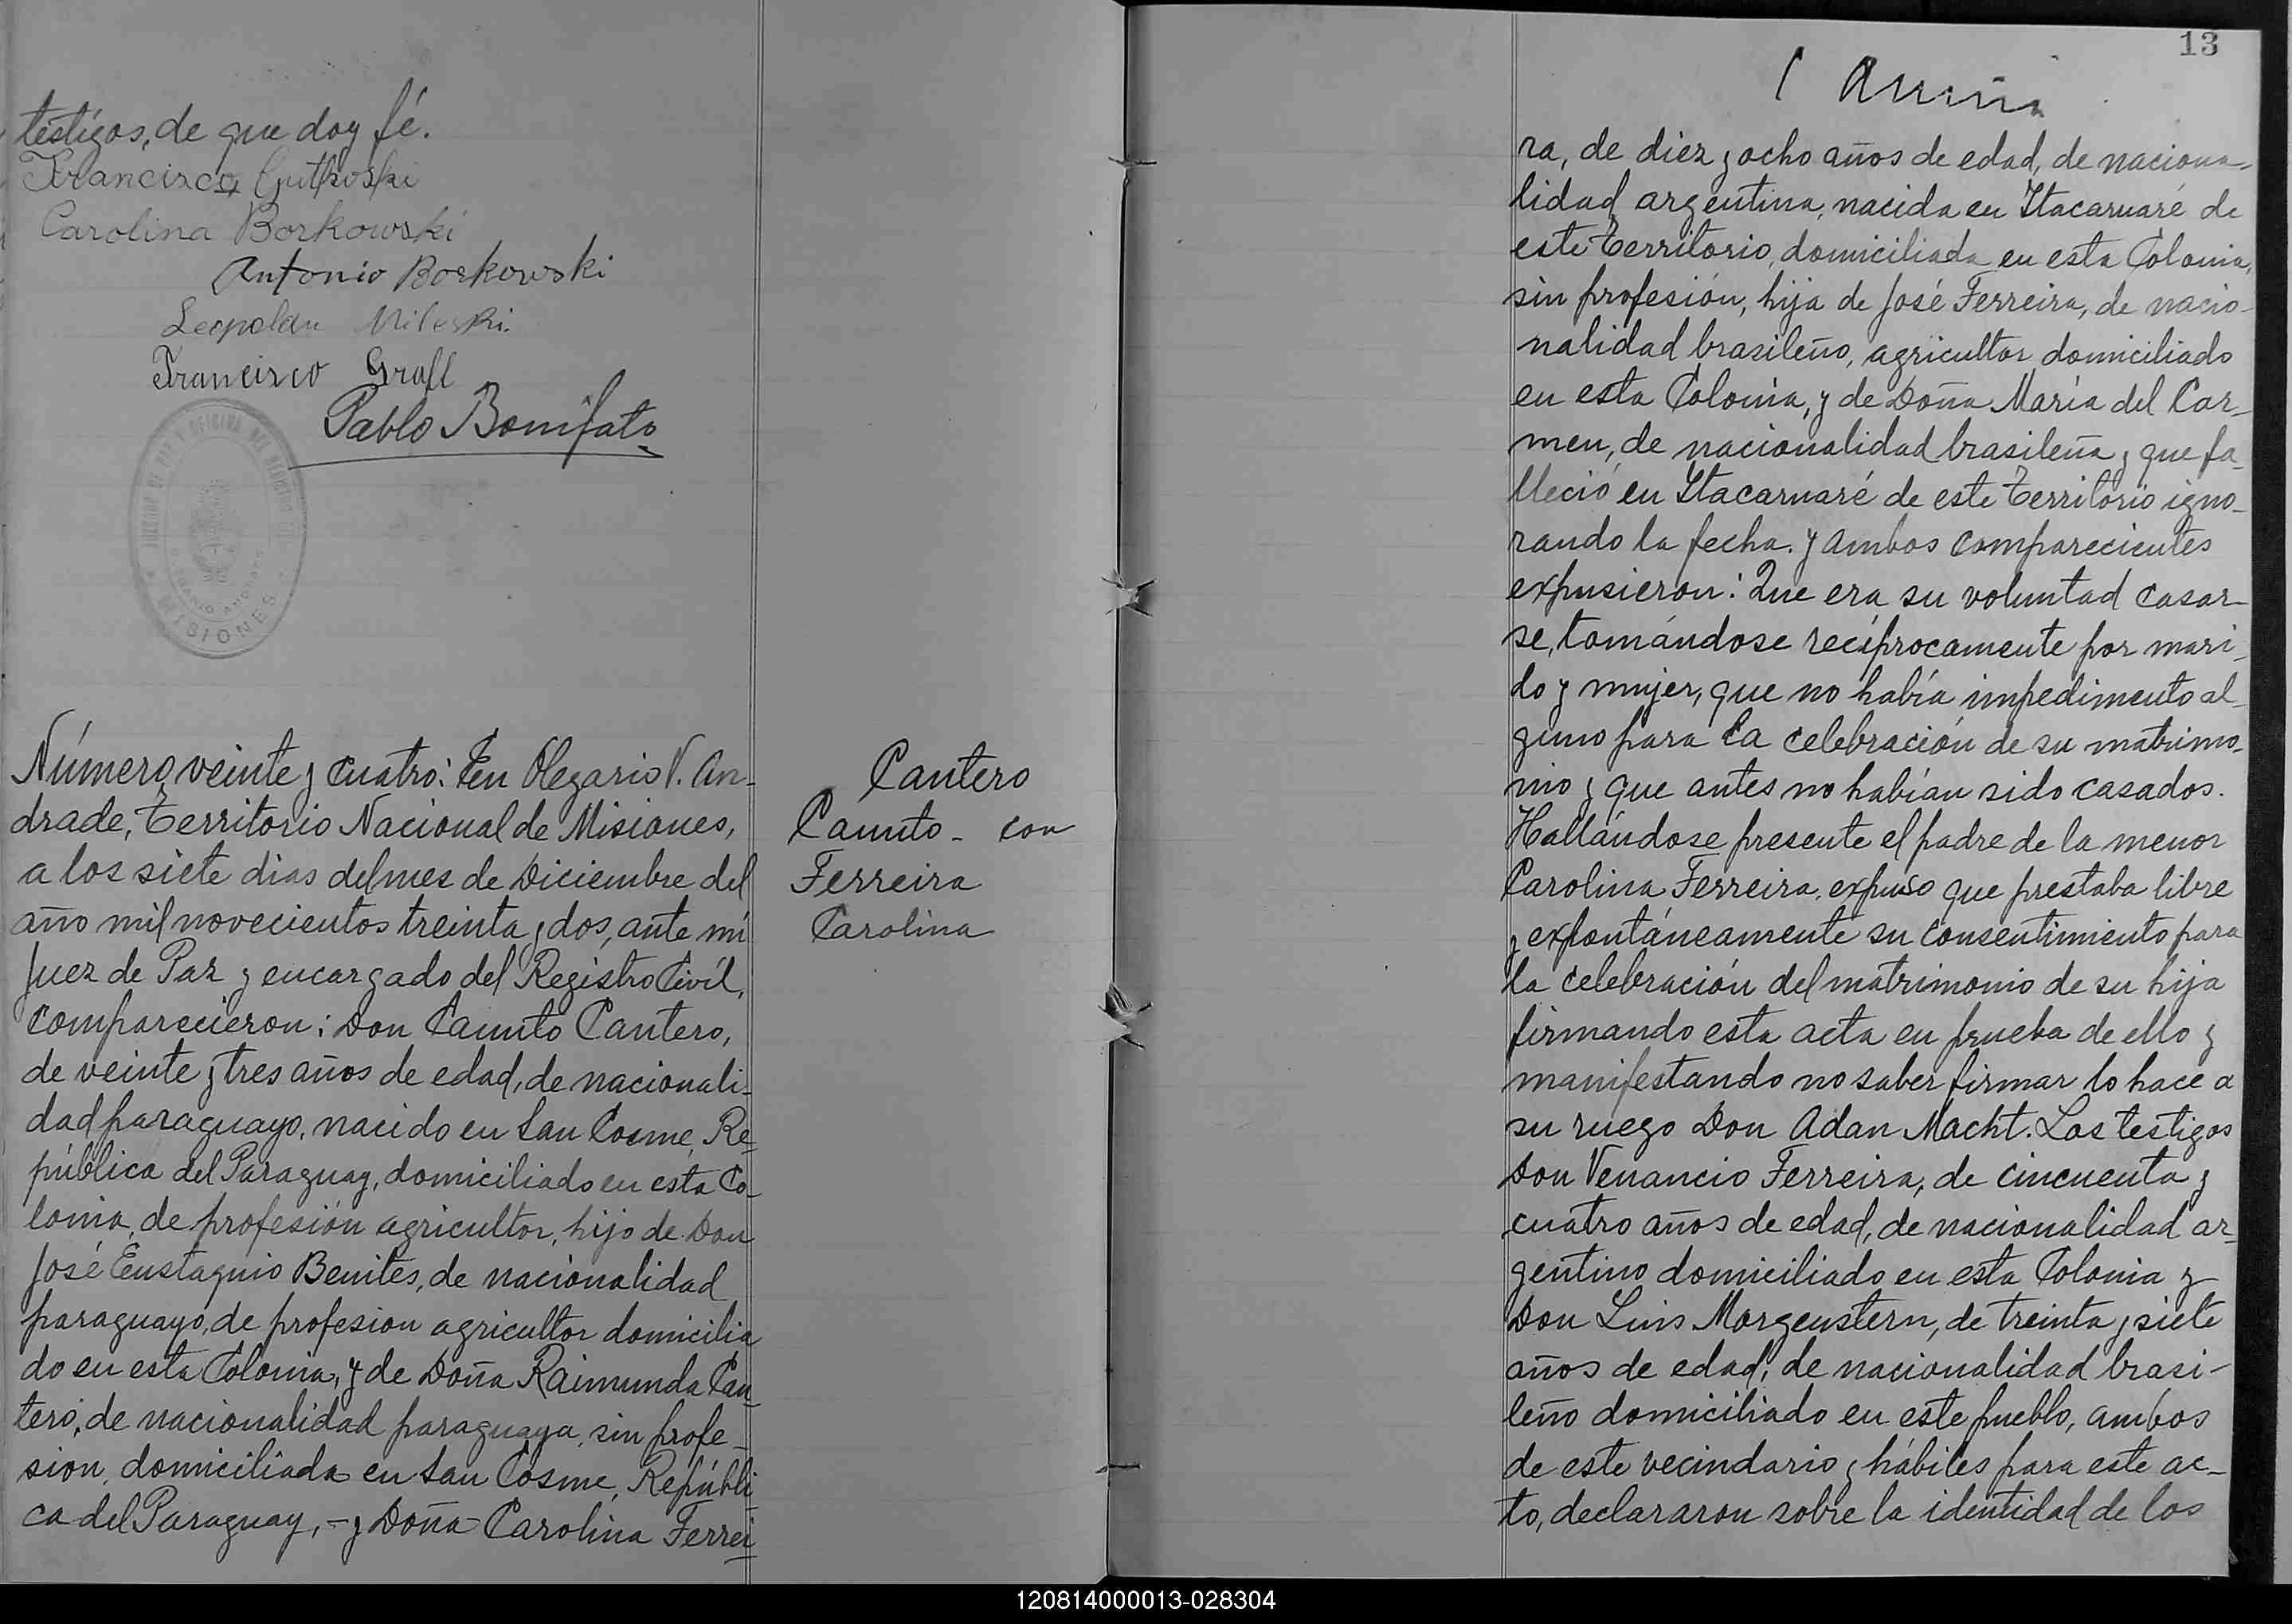 testigos, de que doy fé.
Francisco Gutkoski
Carolina Borkowski
Antonio Borkowski
Leopoldo Mileski.
Francisco Grall
Pablo Bonifato
MISIONES
Número veinte y cuatro: En Olegario V. An-
drade, Territorio Nacional de Misiones,
a los siete dias del mes de Diciembre del
año mil novecientos treinta y dos, ante mí
Juez de Paz y encargado del Registro Civíl,
comparecieron: Don Canuto Cantero,
de veinte y tres años de edad, de nacionali-
dad paraguayo, nacido en San Cosme, Re-
pública del Paraguay, domiciliado en esta Co-
lonia, de profesión agricultor, hijo de Don
José Eustaquio Benites, de nacionalidad
paraguayo, de profesion agricultor domicilia
do en esta Colonia, y de Doña Raimunda Can-
tero, de nacionalidad paraguaya, sin profe-
sion, domiciliada en San Cosme, Repúbli-
ca del Paraguay, - y Doña Carolina Ferrei-
Cantero
Canuto - con
Ferreira
Carolina
13
ra, de diez y ocho años de edad, de naciona-
lidad argentina, nacida en Itacaruaré de
este Territorio, domiciliada en esta Colonia,
sin profesión, hija de José Ferreira, de nacio-
nalidad brasileño, agricultor domiciliado
en esta Colonia, y de Doña María del Car-
men, de nacionalidad brasileña y que fa-
lleció en Itacaruaré de este Territorio igno-
rando la fecha. y ambos comparecientes
expusieron: Que era su voluntad casar-
se, tomándose recíprocamente por mari-
do y mujer, que no había impedimento al-
guno para la celebración de su matrimo-
nio y que antes no habían sido casados.
Hallándose presente el padre de la menor
Carolina Ferreira, expuso que prestaba libre
y expontáneamente su consentimiento para
la celebración del matrimonio de su hija
firmando esta acta en prueba de ello y
manifestando no saber firmar lo hace a
su ruego Don Adan Macht. Los testigos
Don Venancio Ferreira, de cincuenta y
cuatro años de edad, de nacionalidad ar-
gentino domiciliado en esta Colonia y
Don Luis Morgenstern, de treinta y siete
años de edad, de nacionalidad brasi-
leño domiciliado en este pueblo, ambos
de este vecindario y hábiles para este ac-
to, declararon sobre la identidad de los
120814000013-028304